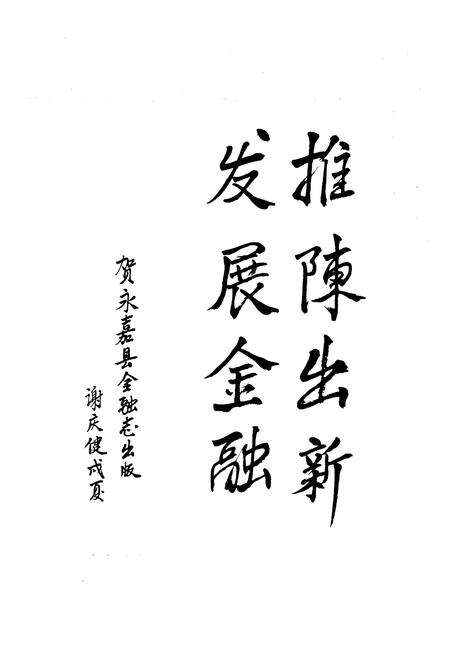 推陳出新
发展金融
贺永嘉县金融志出版
谢庆健戌夏